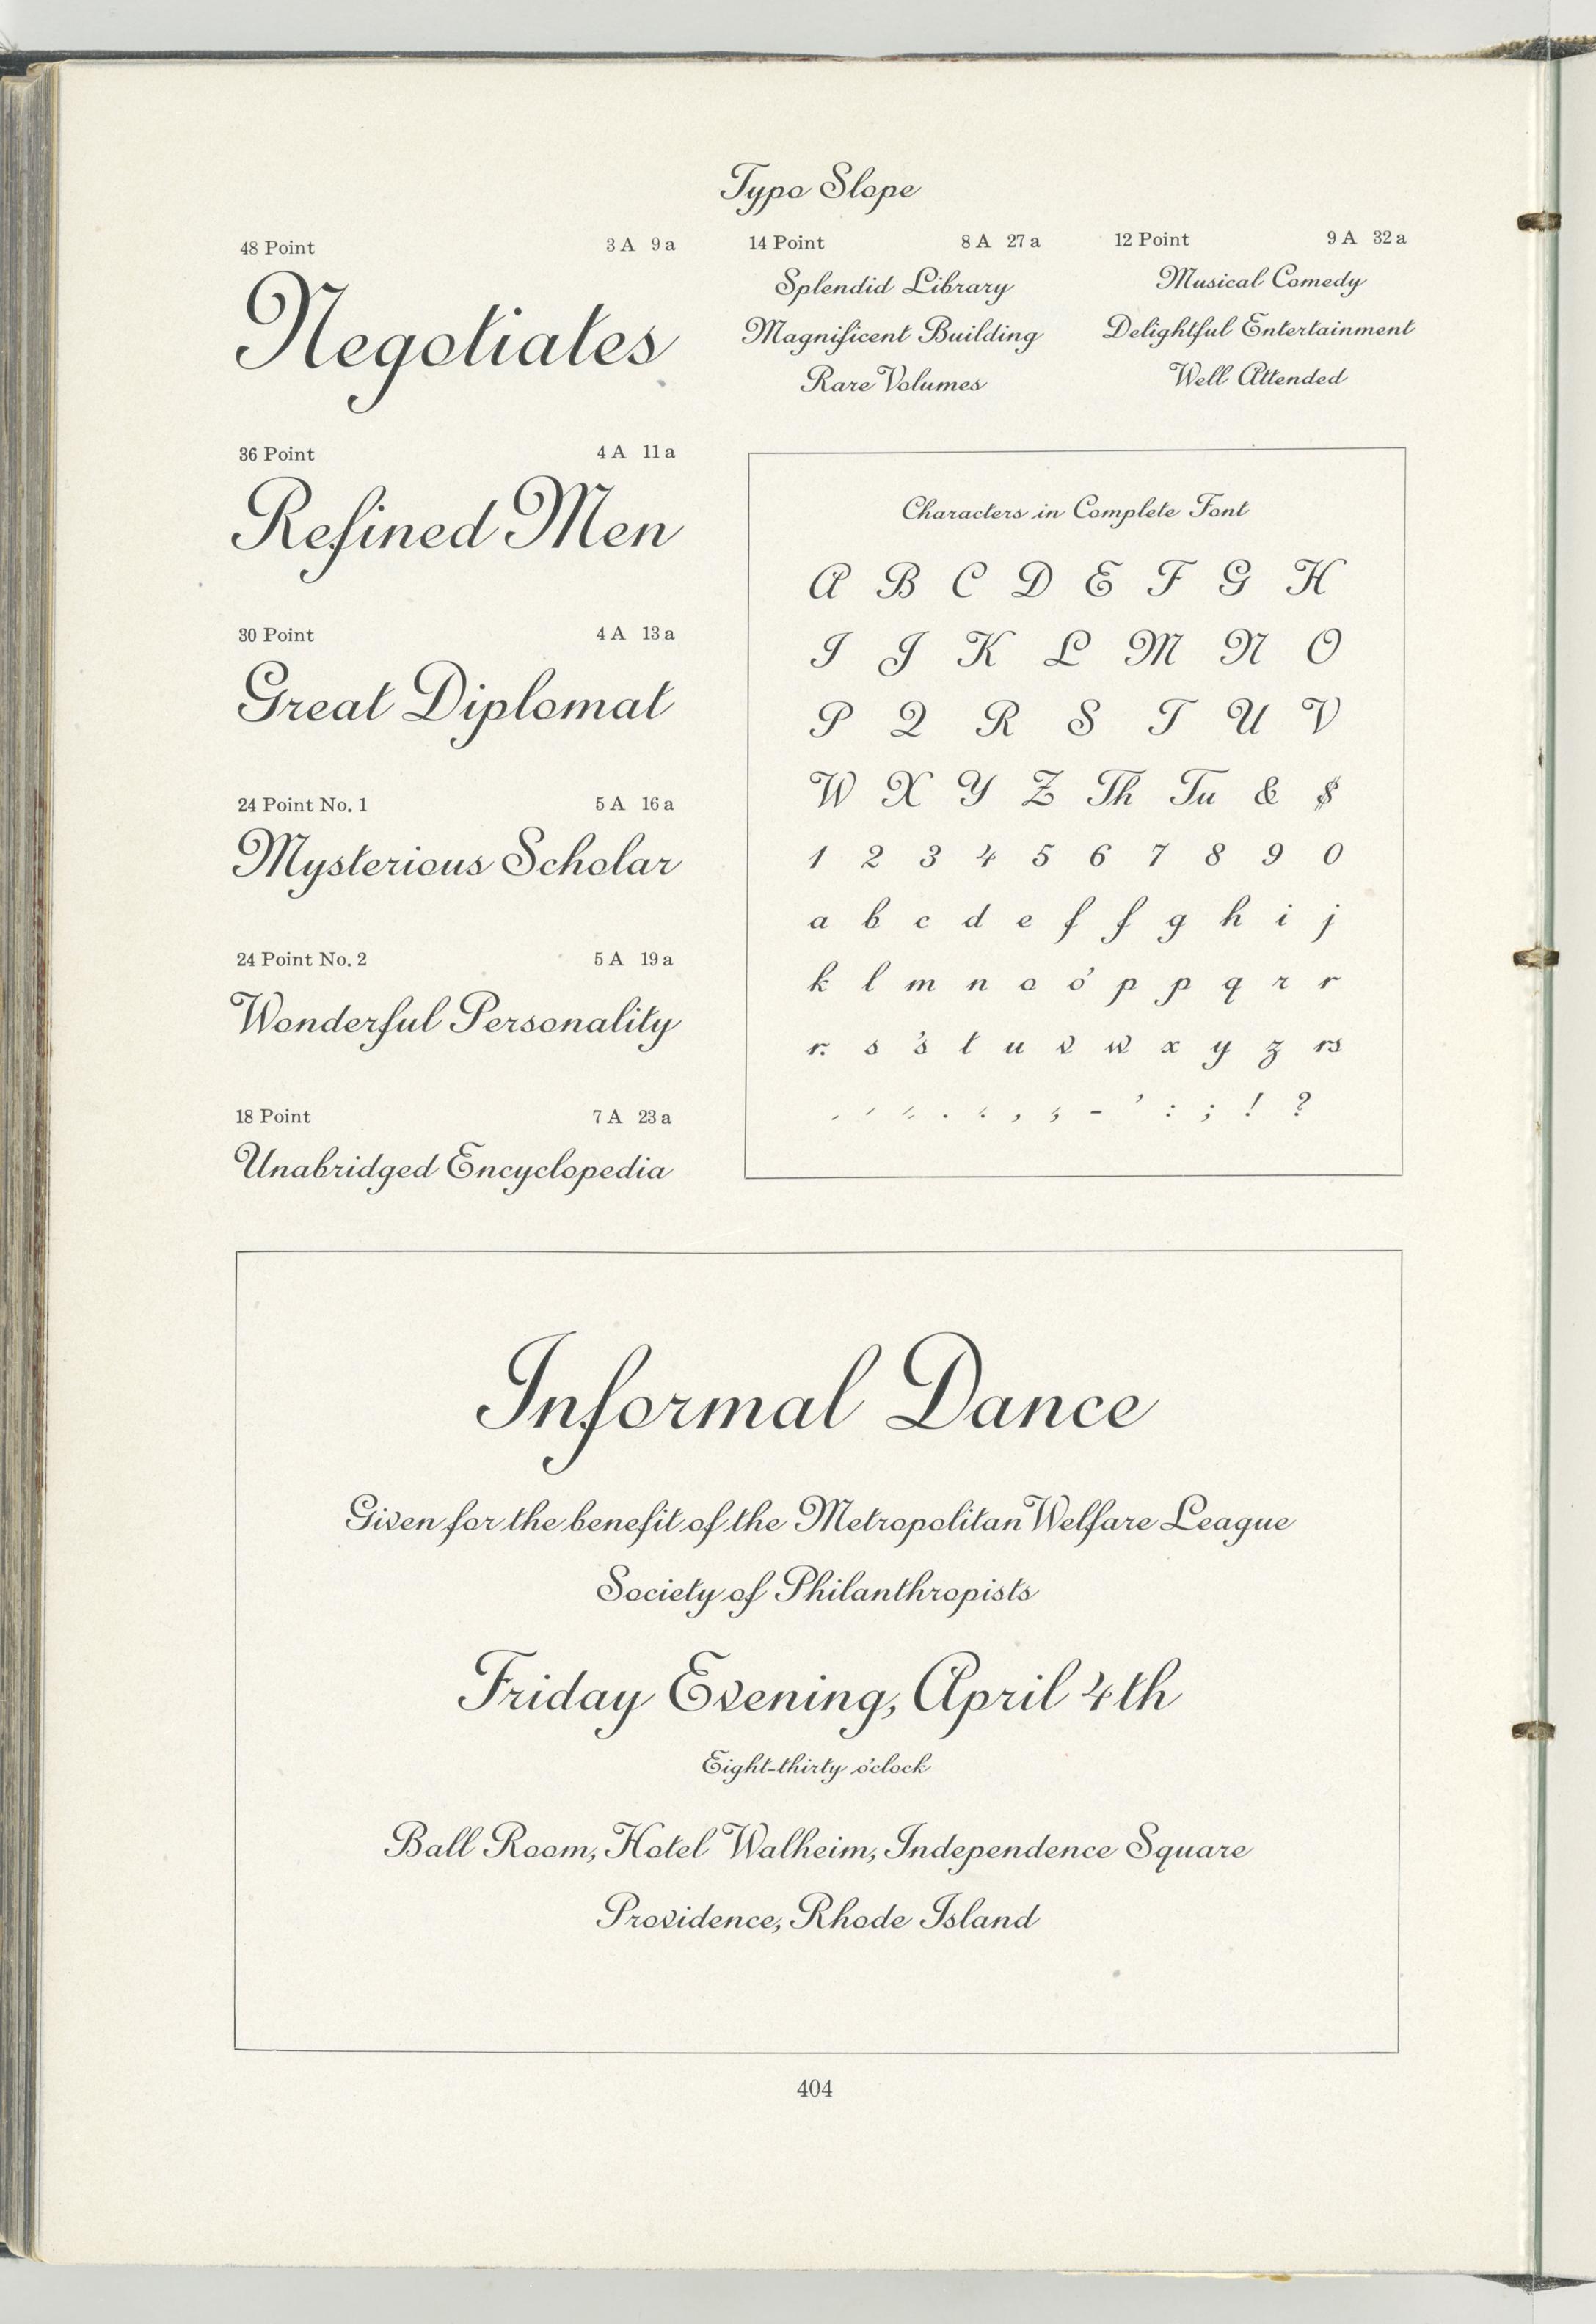 Typo Slope
48 Point 3 A 9 a
Negotiates
36 Point 4 A 11 a
Refined Men
30 Point 4 A 13 a
Great Diplomat
24 Point No. 1 5 A 16 a
Mysterious Scholar
24 Point No. 2 5 A 19 a
Wonderful Personality
18 Point 7 A 23 a
Unabridged Encyclopedia
14 Point 8 A 27 a
Splendid Library
Magnificent Building
Rare Volumes
12 Point 9 A 32 a
Musical Comedy
Delightful Entertainment
Well Attended
Characters in Complete Font
A B C D E F G H
I J K L M N O
P Q R S T U V
W X Y Z Th Tu & $
1 2 3 4 5 6 7 8 9 0
a b c d e f f g h i j
k l m n o o' p p q r r
r. s 's t u v w x y z rs
. , - ' : ; ! ?
Informal Dance
Given for the benefit of the Metropolitan Welfare League
Society of Philanthropists
Friday Evening, April 4th
Eight-thirty o'clock
Ball Room, Hotel Walheim, Independence Square
Providence, Rhode Island
404